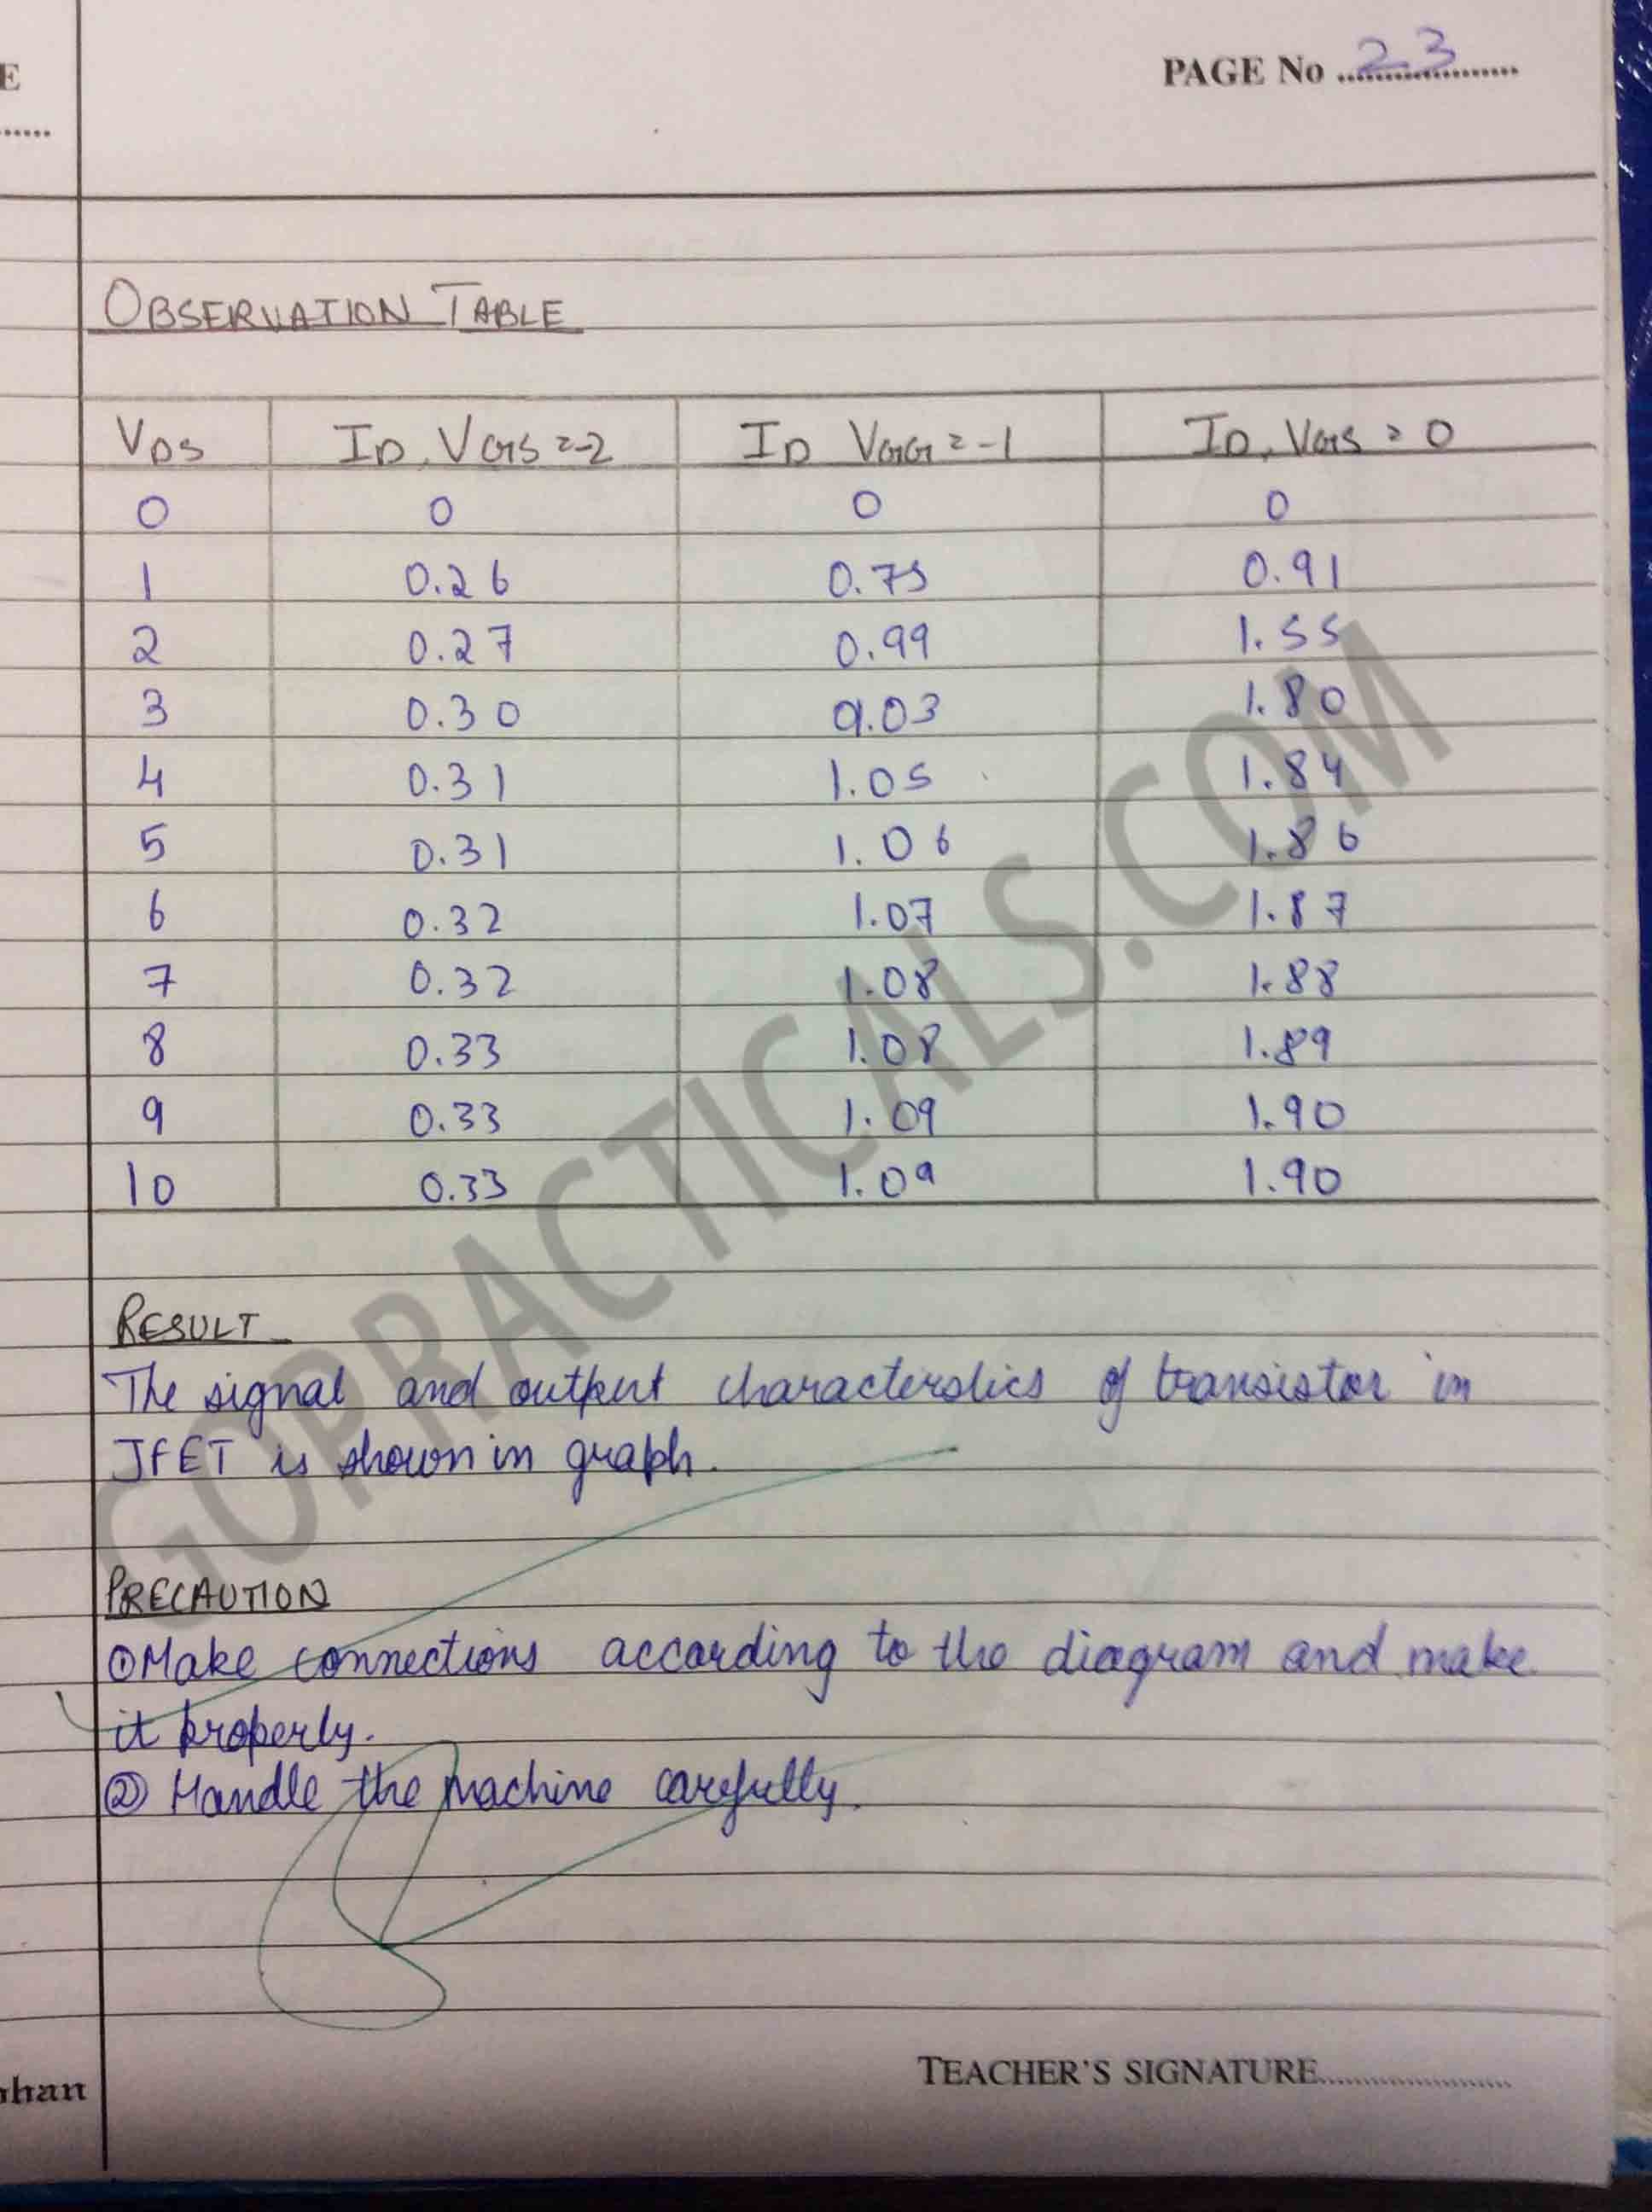 E
PAGE No 23
OBSERVATION TABLE
VDS ID, VGS = -2 ID VGG = -1 ID, VGS = 0
0 0 0 0
1 0.26 0.75 0.91
2 0.27 0.99 1.55
3 0.30 0.03 1.80
4 0.31 1.05 1.84
5 0.31 1.06 1.86
6 0.32 1.07 1.87
7 0.32 1.08 1.88
8 0.33 1.08 1.89
9 0.33 1.09 1.90
10 0.33 1.09 1.90
GOPRACTICALS.COM
RESULT
The signal and output characterstics of transistor in
JFET is shown in graph.
PRECAUTION
① Make connections according to the diagram and make
it properly.
② Handle the machine carefully.
TEACHER'S SIGNATURE
han